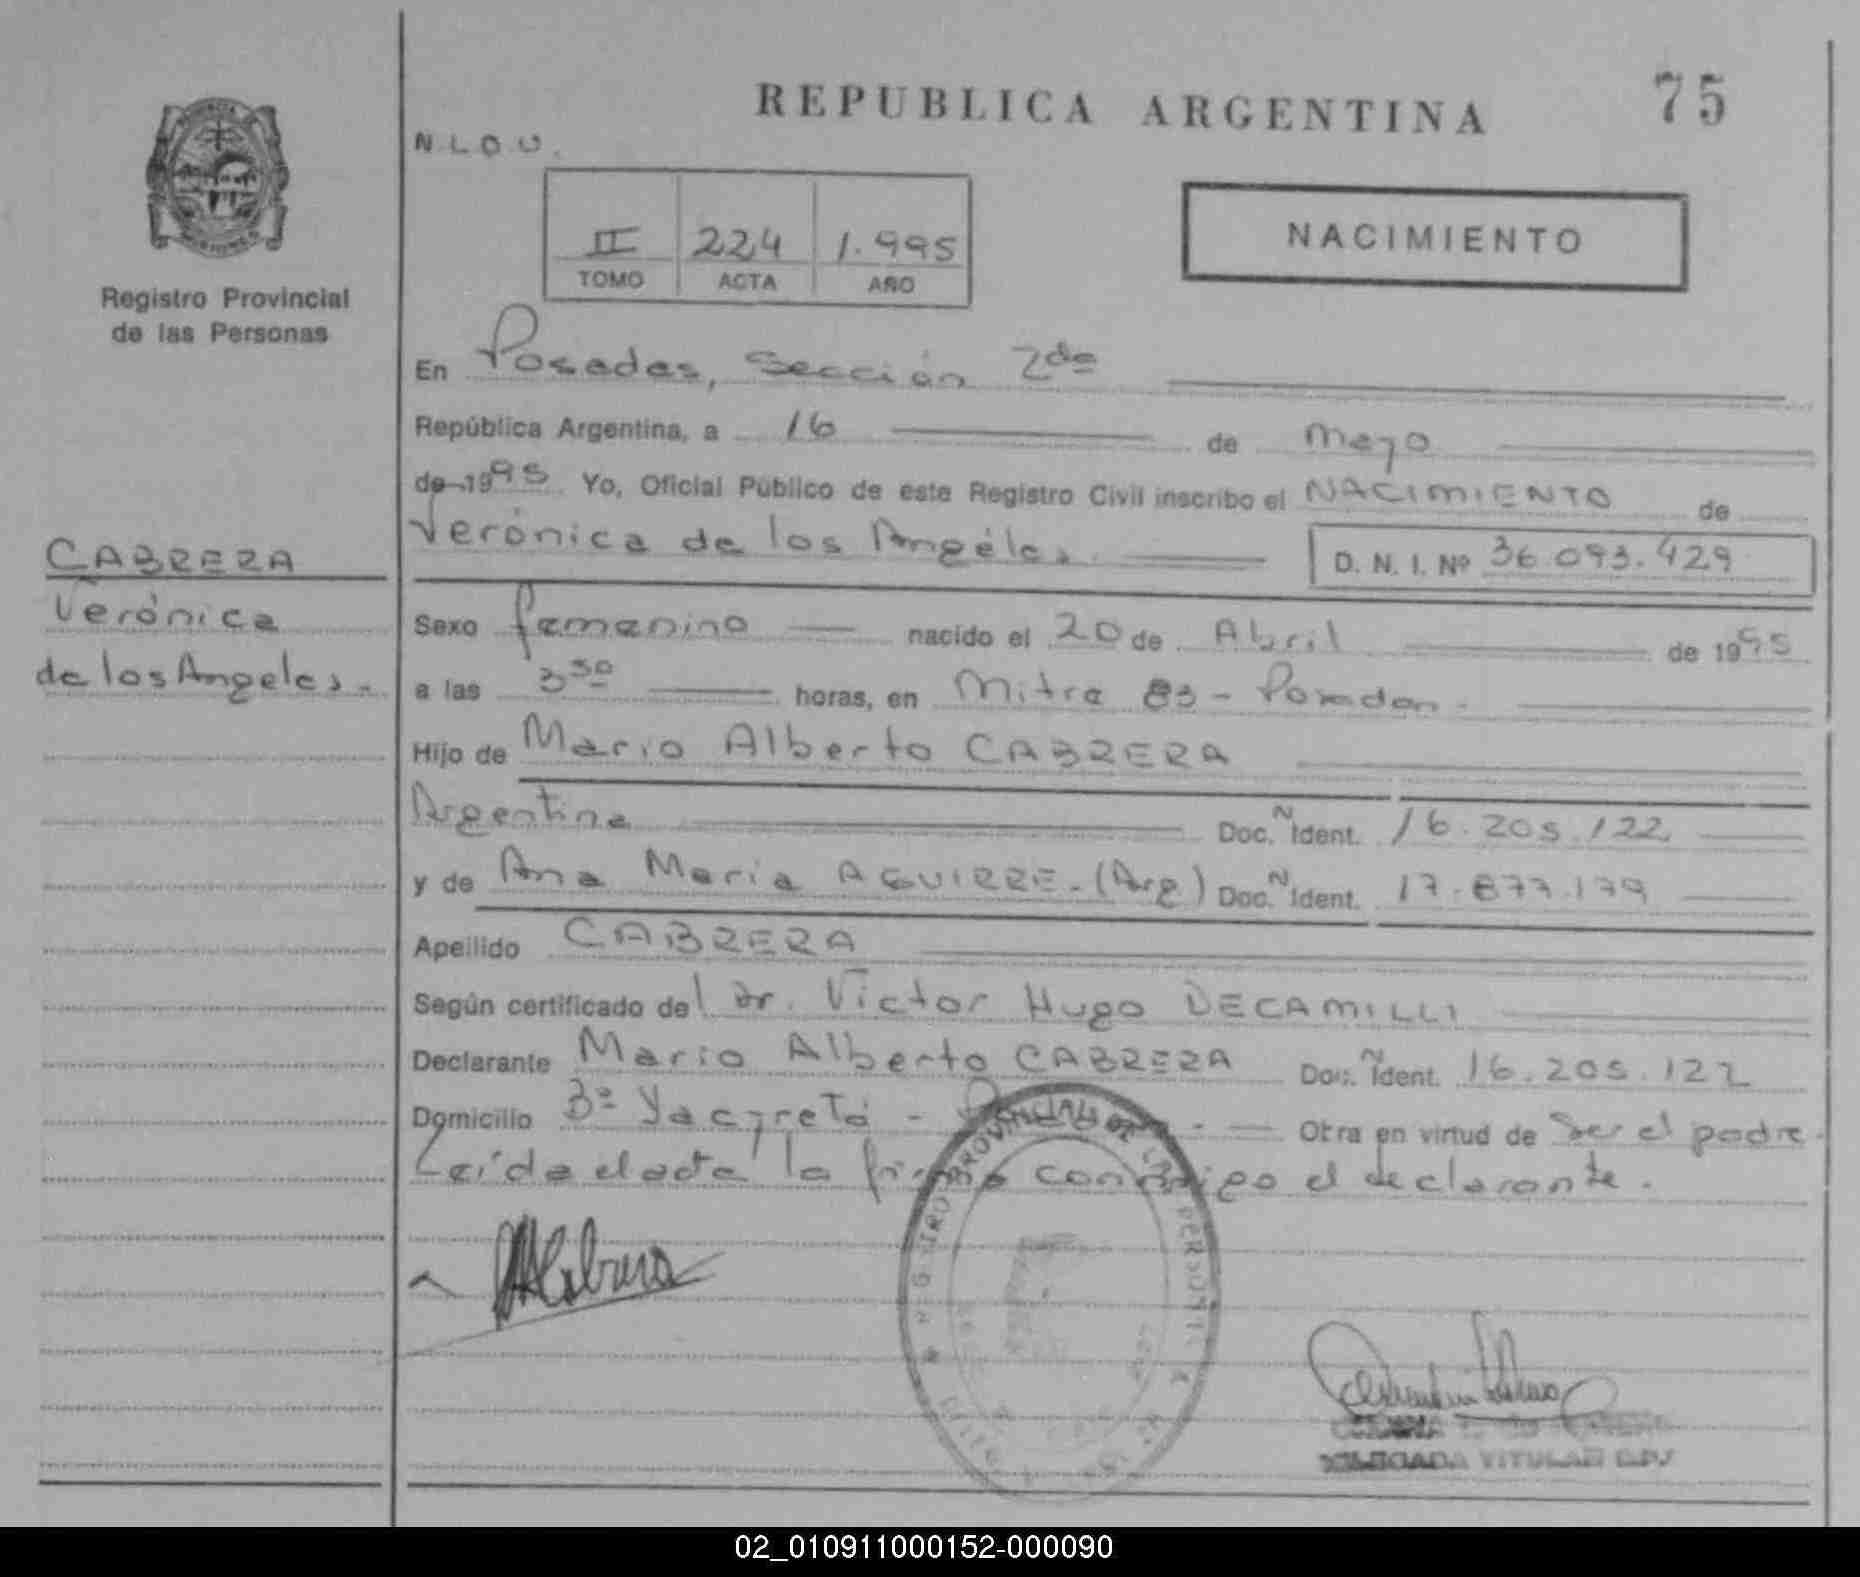 REPUBLICA ARGENTINA
75
N.L.O.U.
II 224 1.995
TOMO ACTA AÑO
NACIMIENTO
Registro Provincial
de las Personas
CABRERA
Verónica
de los Angeles.-
En Posadas, Sección 2da
República Argentina, a 16 de Mayo
de 1995 Yo, Oficial Público de este Registro Civil inscribo el NACIMIENTO de
Verónica de los Angéles.
D. N. I. Nº 36.093.429
Sexo femenino nacido el 20 de Abril de 1995
a las 3 30 horas, en Mitre 83 - Posadas.
Hijo de Mario Alberto CABRERA
Argentina Doc. Ñ Ident. 16.205.122
y de Ana María AGUIRRE.-(Arg) Doc. Ñ Ident. 17.877.179
Apellido CABRERA
Según certificado del Dr. Víctor Hugo DECAMILLI
Declarante Mario Alberto CABRERA Doc. Ñ Ident. 16.205.122
Domicilio Bº Yacyretá - Otra en virtud de Ser el padre.
Leída el acta la firma conmigo el declarante.
REGISTRO PROVINCIAL DE LAS PERSONAS
TITULAR
02_010911000152-000090